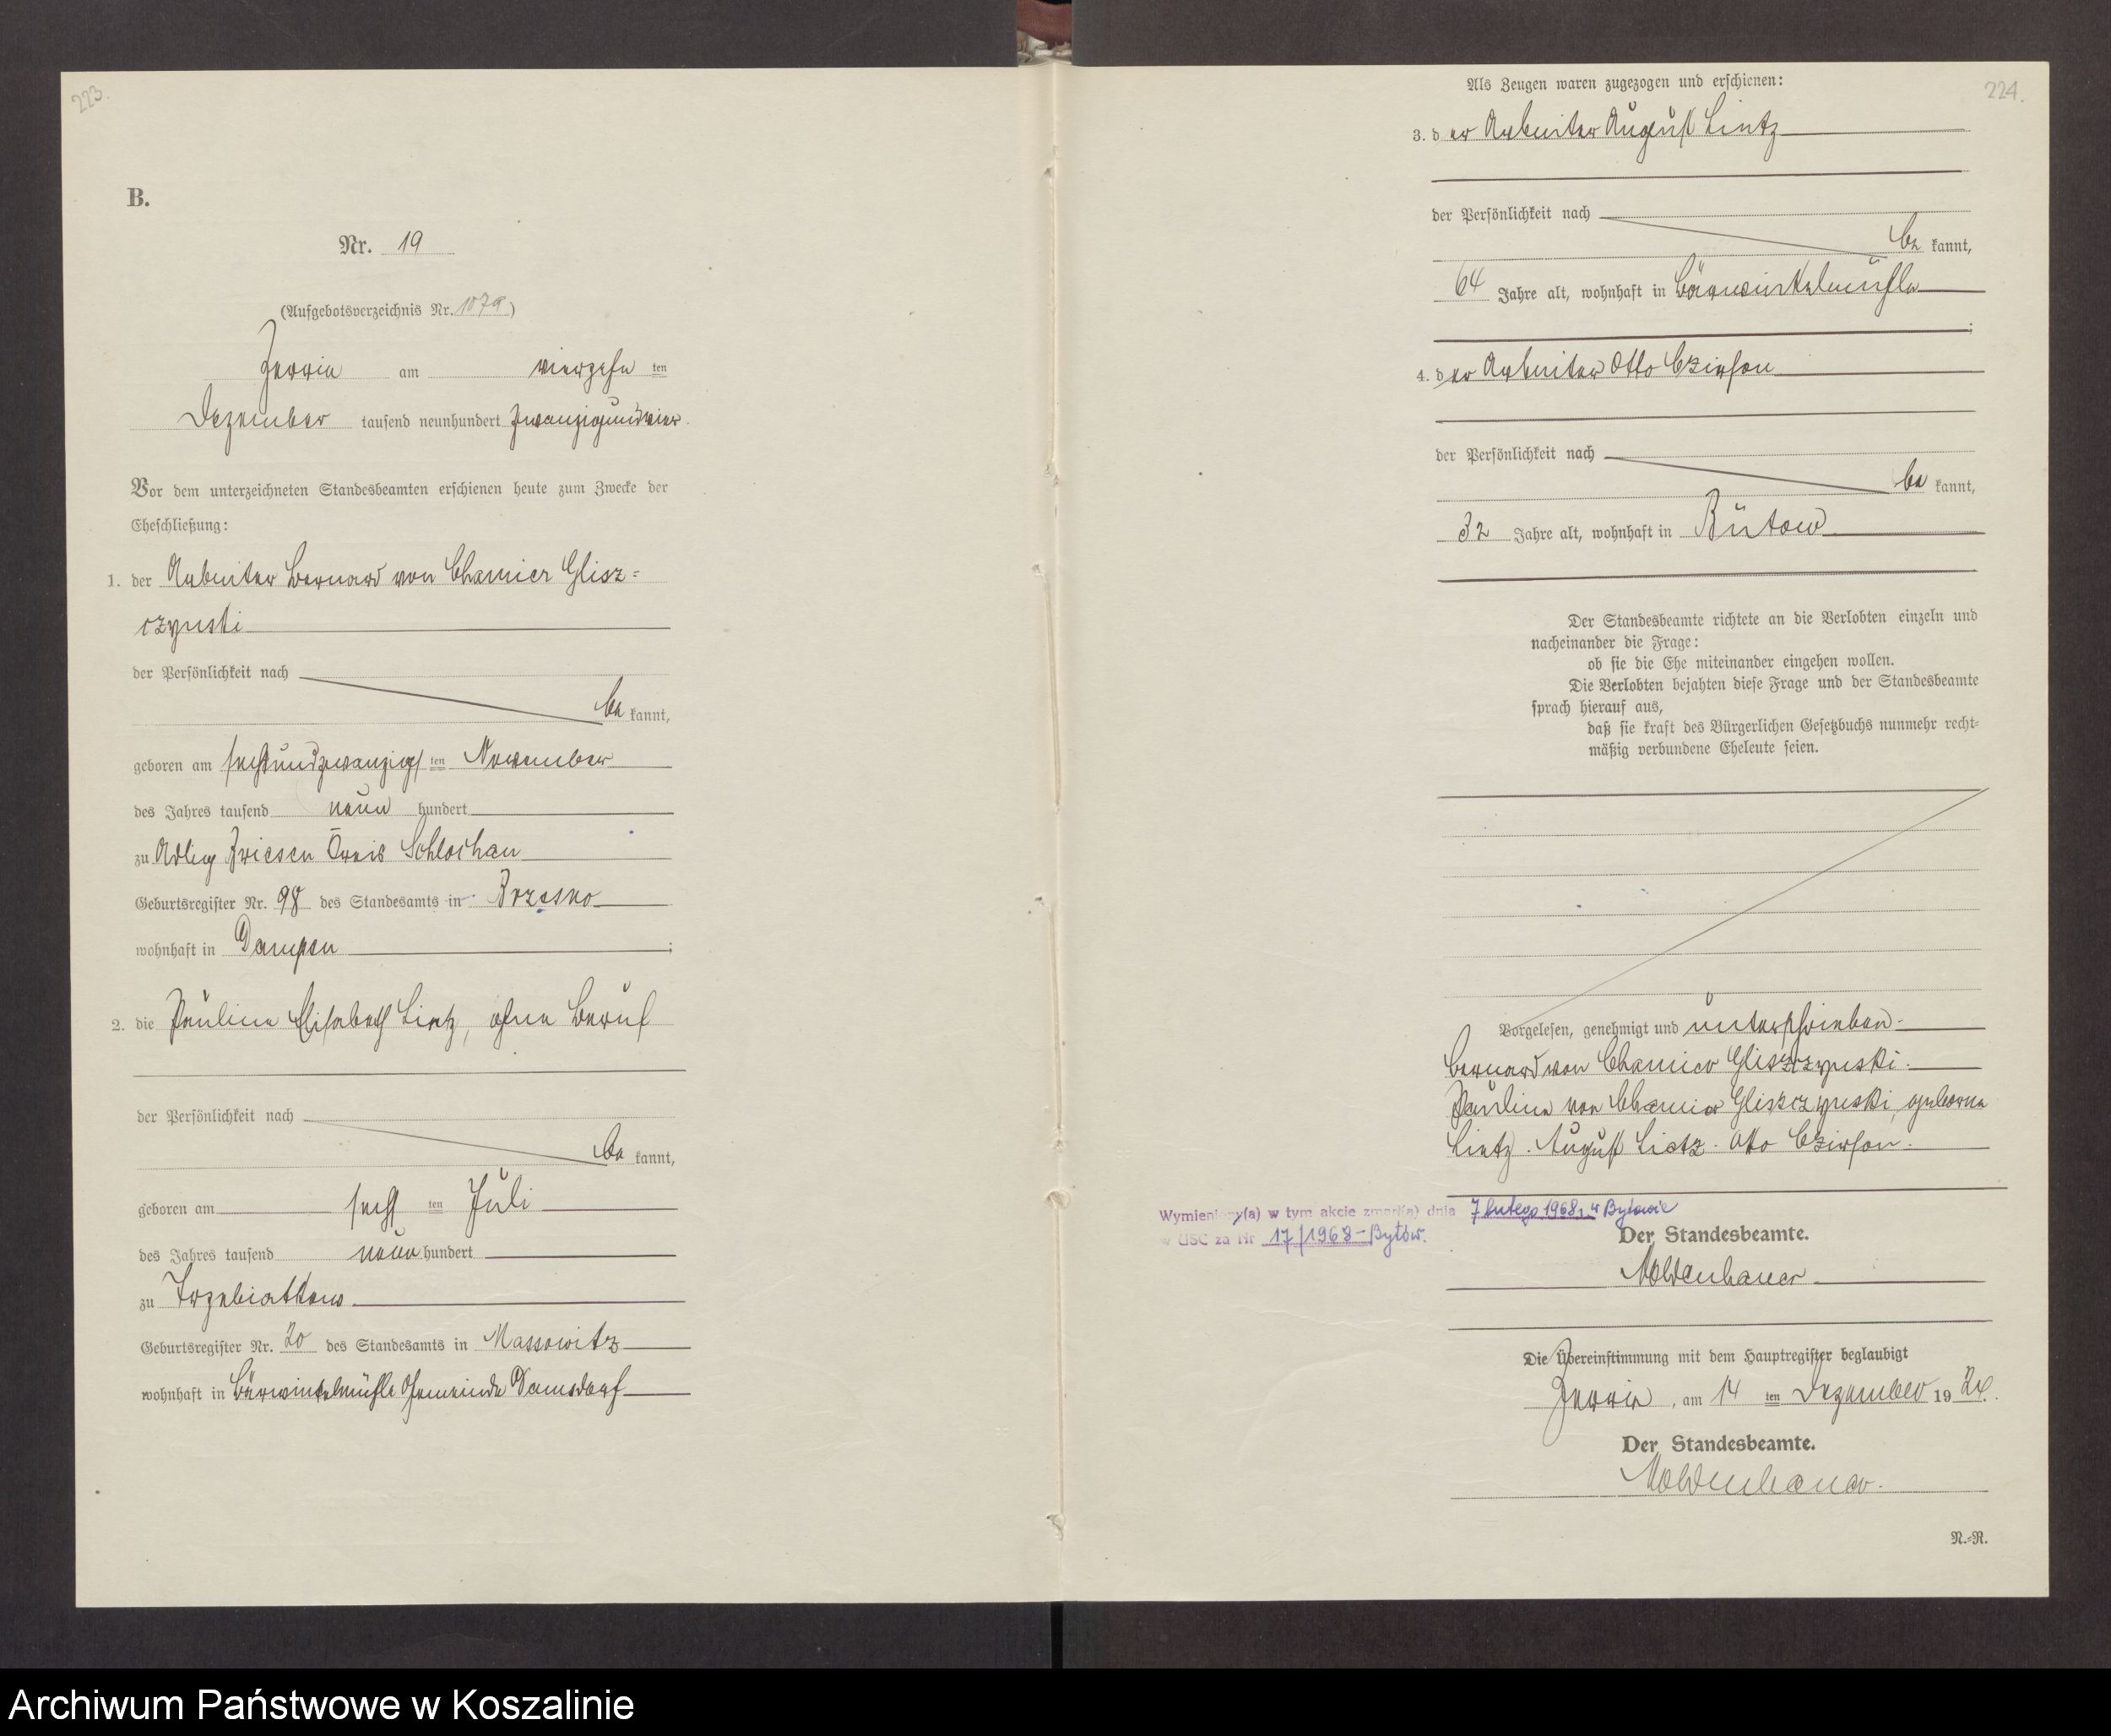 223.
B.
Nr. 19
(Aufgebotsverzeichnis Nr. 1079)
Zerrin am vierzehn ten
Dezember tausend neunhundert zwanzigundvier.
Vor dem unterzeichneten Standesbeamten erschienen heute zum Zwecke der
Eheschließung:
1. der Arbeiter Bernard von Chamier Glisz=
czynski
der Persönlichkeit nach
be kannt,
geboren am sechsundzwanzigs ten November
des Jahres tausend neun hundert
zu Adlig Briesen Kreis Schlochau
Geburtsregister Nr. 98 des Standesamts in Brzesno
wohnhaft in Dampen ;
2. die Pauline Elisabeth Lietz, ohne Beruf
der Persönlichkeit nach
be kannt,
geboren am sechs ten Juli
des Jahres tausend neun hundert
zu Trzebiatkow
Geburtsregister Nr. 20 des Standesamts in Massowitz
wohnhaft in Bärwinkelmühle Gemeinde Damsdorf
224.
Als Zeugen waren zugezogen und erschienen:
3. d er Arbeiter August Lietz
der Persönlichkeit nach
be kannt,
64 Jahre alt, wohnhaft in Bärwinkelmühle
;
4. d er Arbeiter Otto Czirson
der Persönlichkeit nach
be kannt,
32 Jahre alt, wohnhaft in Bütow
Der Standesbeamte richtete an die Verlobten einzeln und
nacheinander die Frage:
ob sie die Ehe miteinander eingehen wollen.
Die Verlobten bejahten diese Frage und der Standesbeamte
sprach hierauf aus,
daß sie kraft des Bürgerlichen Gesetzbuchs nunmehr recht=
mäßig verbundene Eheleute seien.
Vorgelesen, genehmigt und unterschrieben
Bernard von Chamier Gliszczynski.
Pauline von Chamier Gliszczynski, geborne
Lietz. August Lietz. Otto Czirson.
Wymieniony(a) w tym akcie zmarł(a) dnia 7 lutego 1968 r. w Bytowie
w USC za Nr 17/1968 - Bytów.
Der Standesbeamte.
Moldenhauer
Die Übereinstimmung mit dem Hauptregister beglaubigt
Zerrin, am 14 ten Dezember 19 24.
Der Standesbeamte.
Moldenhauer.
N.=R.
Archiwum Państwowe w Koszalinie